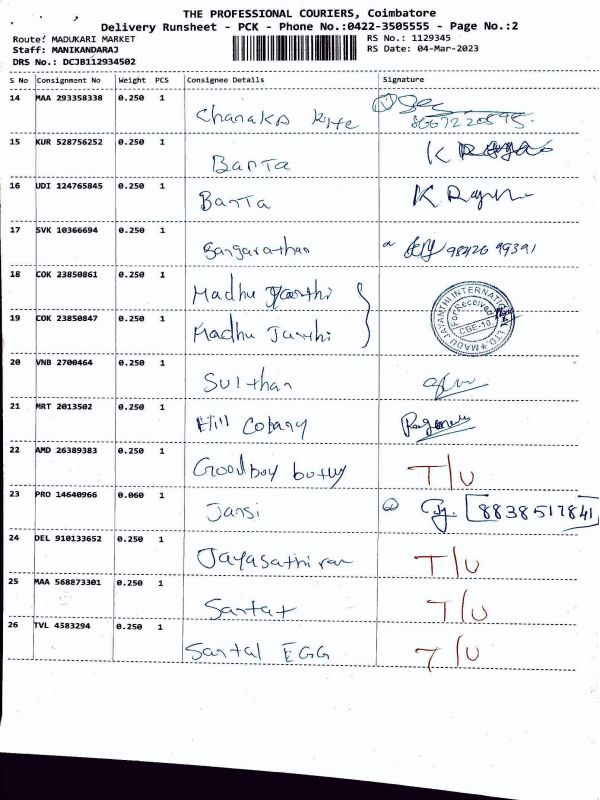 THE PROFESSIONAL COURIERS, Coimbatore
Delivery Runsheet - PCK - Phone No.:0422-3505555 - Page No.:2
Route: MADUKARI MARKET RS No.: 1129345
Staff: MANIKANDARAJ RS Date: 04-Mar-2023
DRS No.: DCJB112934502
S No Consignment No Weight PCS Consignee Details Signature
14 MAA 293358338 0.250 1 Chanaka
15 KUR 528756252 0.250 1 Banta K
16 UDI 124765845 0.250 1 Banta K
17 SVK 10366694 0.250 1 Gangarathan 98426 99391
18 COK 23850861 0.250 1 Madhu
19 COK 23850847 0.250 1 Madhu Janthi
MADU JAYANTHI INTERNATIONAL LTD
For Received
CBE-10
20 VNB 2700464 0.250 1 Sulthan
21 MRT 2013502 0.250 1 Hill Cobany
22 AMD 26389383 0.250 1 Goodboy T/U
23 PRO 14640966 0.060 1 Jansi 8838517841
24 DEL 910133652 0.250 1 Jayasathiran T/U
25 MAA 568873301 0.250 1 T/U
26 TVL 4583294 0.250 1 Santal EGG T/U